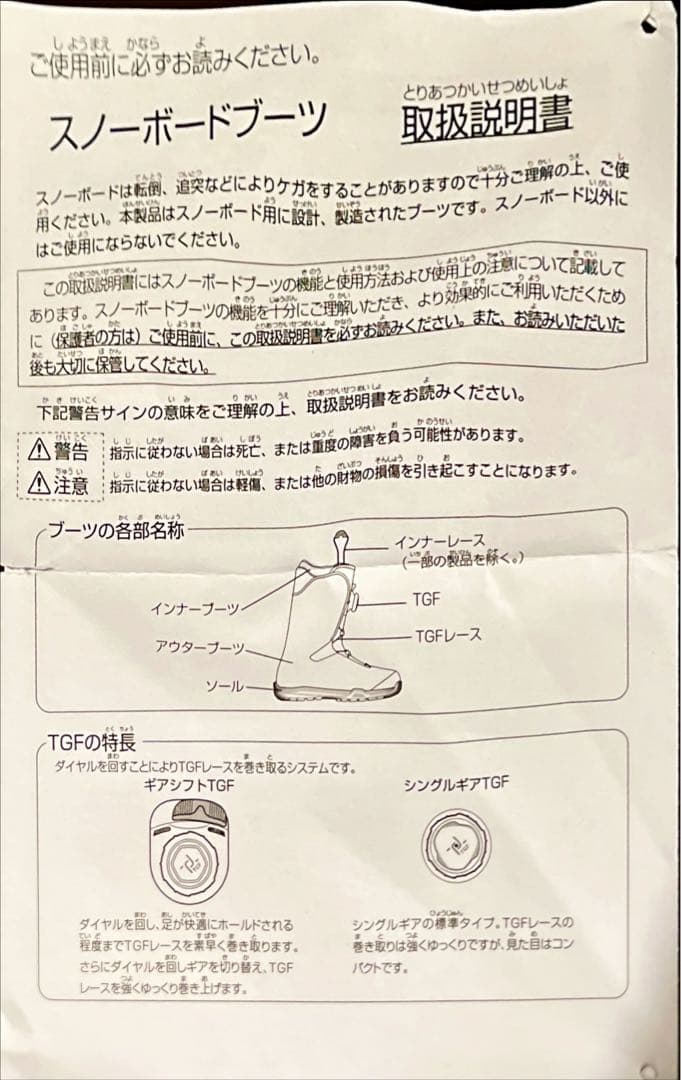 ご使用前に必ずお読みください。
スノーボードブーツ 取扱説明書
スノーボードは転倒、追突などによりケガをすることがありますので十分ご理解の上、ご使
用ください。本製品はスノーボード用に設計、製造されたブーツです。スノーボード以外に
はご使用にならないでください。
この取扱説明書にはスノーボードブーツの機能と使用方法および使用上の注意について記載して
あります。スノーボードブーツの機能を十分にご理解いただき、より効果的にご利用いただくため
に（保護者の方は）ご使用前に、この取扱説明書を必ずお読みください。また、お読みいただいた
後も大切に保管してください。
下記警告サインの意味をご理解の上、取扱説明書をお読みください。
警告 指示に従わない場合は死亡、または重度の障害を負う可能性があります。
注意 指示に従わない場合は軽傷、または他の財物の損傷を引き起こすことになります。
ブーツの各部名称
インナーレース
（一部の製品を除く。）
インナーブーツ
TGF
TGFレース
アウターブーツ
ソール
TGFの特長
ダイヤルを回すことによりTGFレースを巻き取るシステムです。
ギアシフトTGF
ダイヤルを回し、足が快適にホールドされる
程度までTGFレースを素早く巻き取ります。
さらにダイヤルを回しギアを切り替え、TGF
レースを強くゆっくり巻き上げます。
シングルギアTGF
シングルギアの標準タイプ。TGFレースの
巻き取りは強くゆっくりですが、見た目はコン
パクトです。